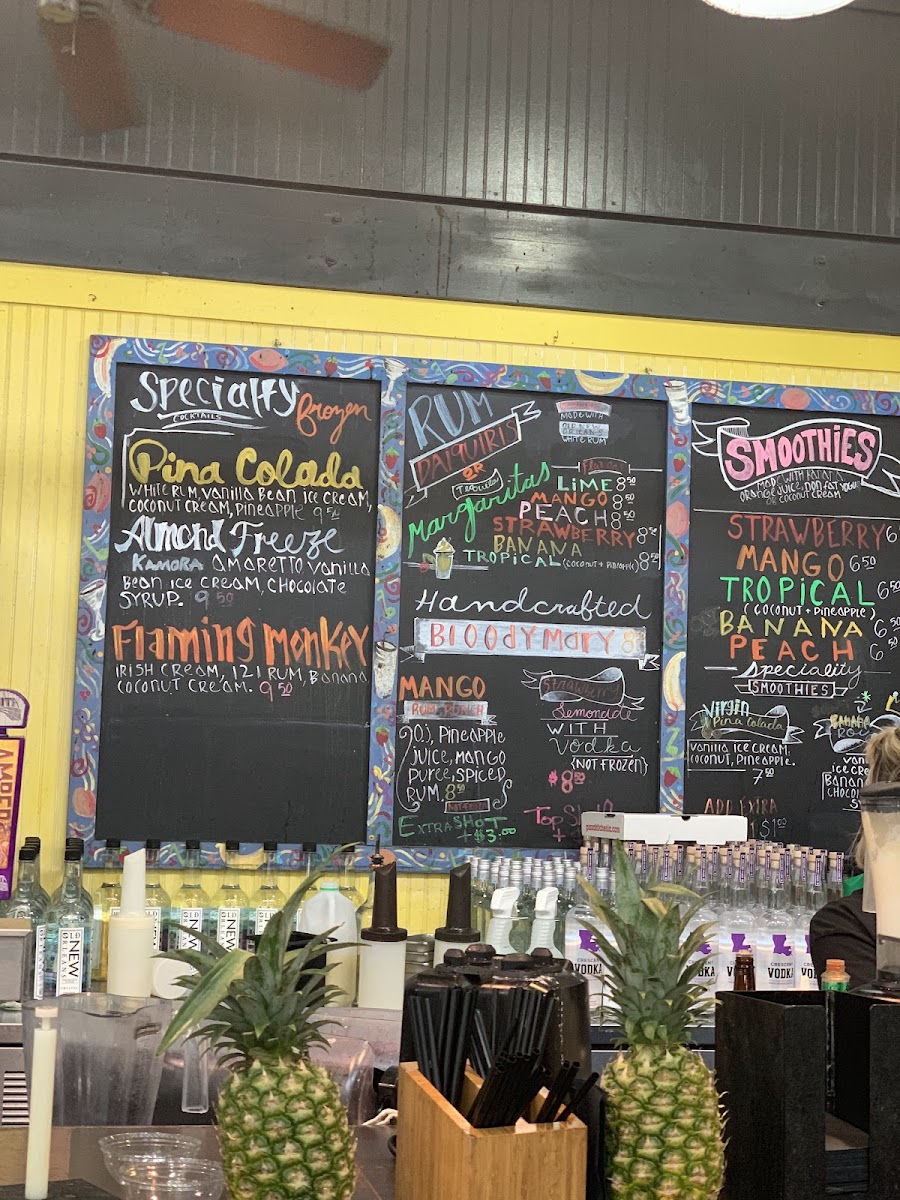 Specialty
COCKTAILS
frozen
Pina Colada
WHITE RUM, VANILLA BEAN ICE CREAM,
COCONUT CREAM, PINEAPPLE 9 50
Almond Freeze
KAMORA AMARETTO VANILLA
BEAN ICE CREAM, CHOCOLATE
SYRUP. 9 50
Flaming Monkey
IRISH CREAM, 121 RUM, BANANA
COCONUT CREAM. 9 50
RUM
DAIQUIRIS
OR
Tequila
Margaritas
MADE WITH
OLD NEW
ORLEANS
WHITE RUM
Flavors
LIME 8 50
MANGO 8 50
PEACH 8 50
STRAWBERRY 8 50
BANANA
TROPICAL (COCONUT + PINEAPPLE) 8 50
Handcrafted
BLOODY MARY 8
MANGO
RUM PUNCH
PINEAPPLE
JUICE, MANGO
PUREE, SPICED
RUM 8 50
NOT FROZEN
EXTRA SHOT
+$3.00
Strawberry
Lemonade
WITH
Vodka
(NOT FROZEN)
$8 50
SMOOTHIES
MADE WITH BANANA
ORANGE JUICE, NON-FAT
OR COCONUT CREAM
STRAWBERRY 6
MANGO 6 50
TROPICAL 6 50
(COCONUT + PINEAPPLE)
BANANA 6 50
PEACH 6 50
Speciality
SMOOTHIES
Virgin
Pina Colada
VANILLA ICE CREAM,
COCONUT, PINEAPPLE.
7 50
ICE
ADD EXTRA
$1 00
OLD
NEW
ORLEANS
VODKA
VODKA
VODKA